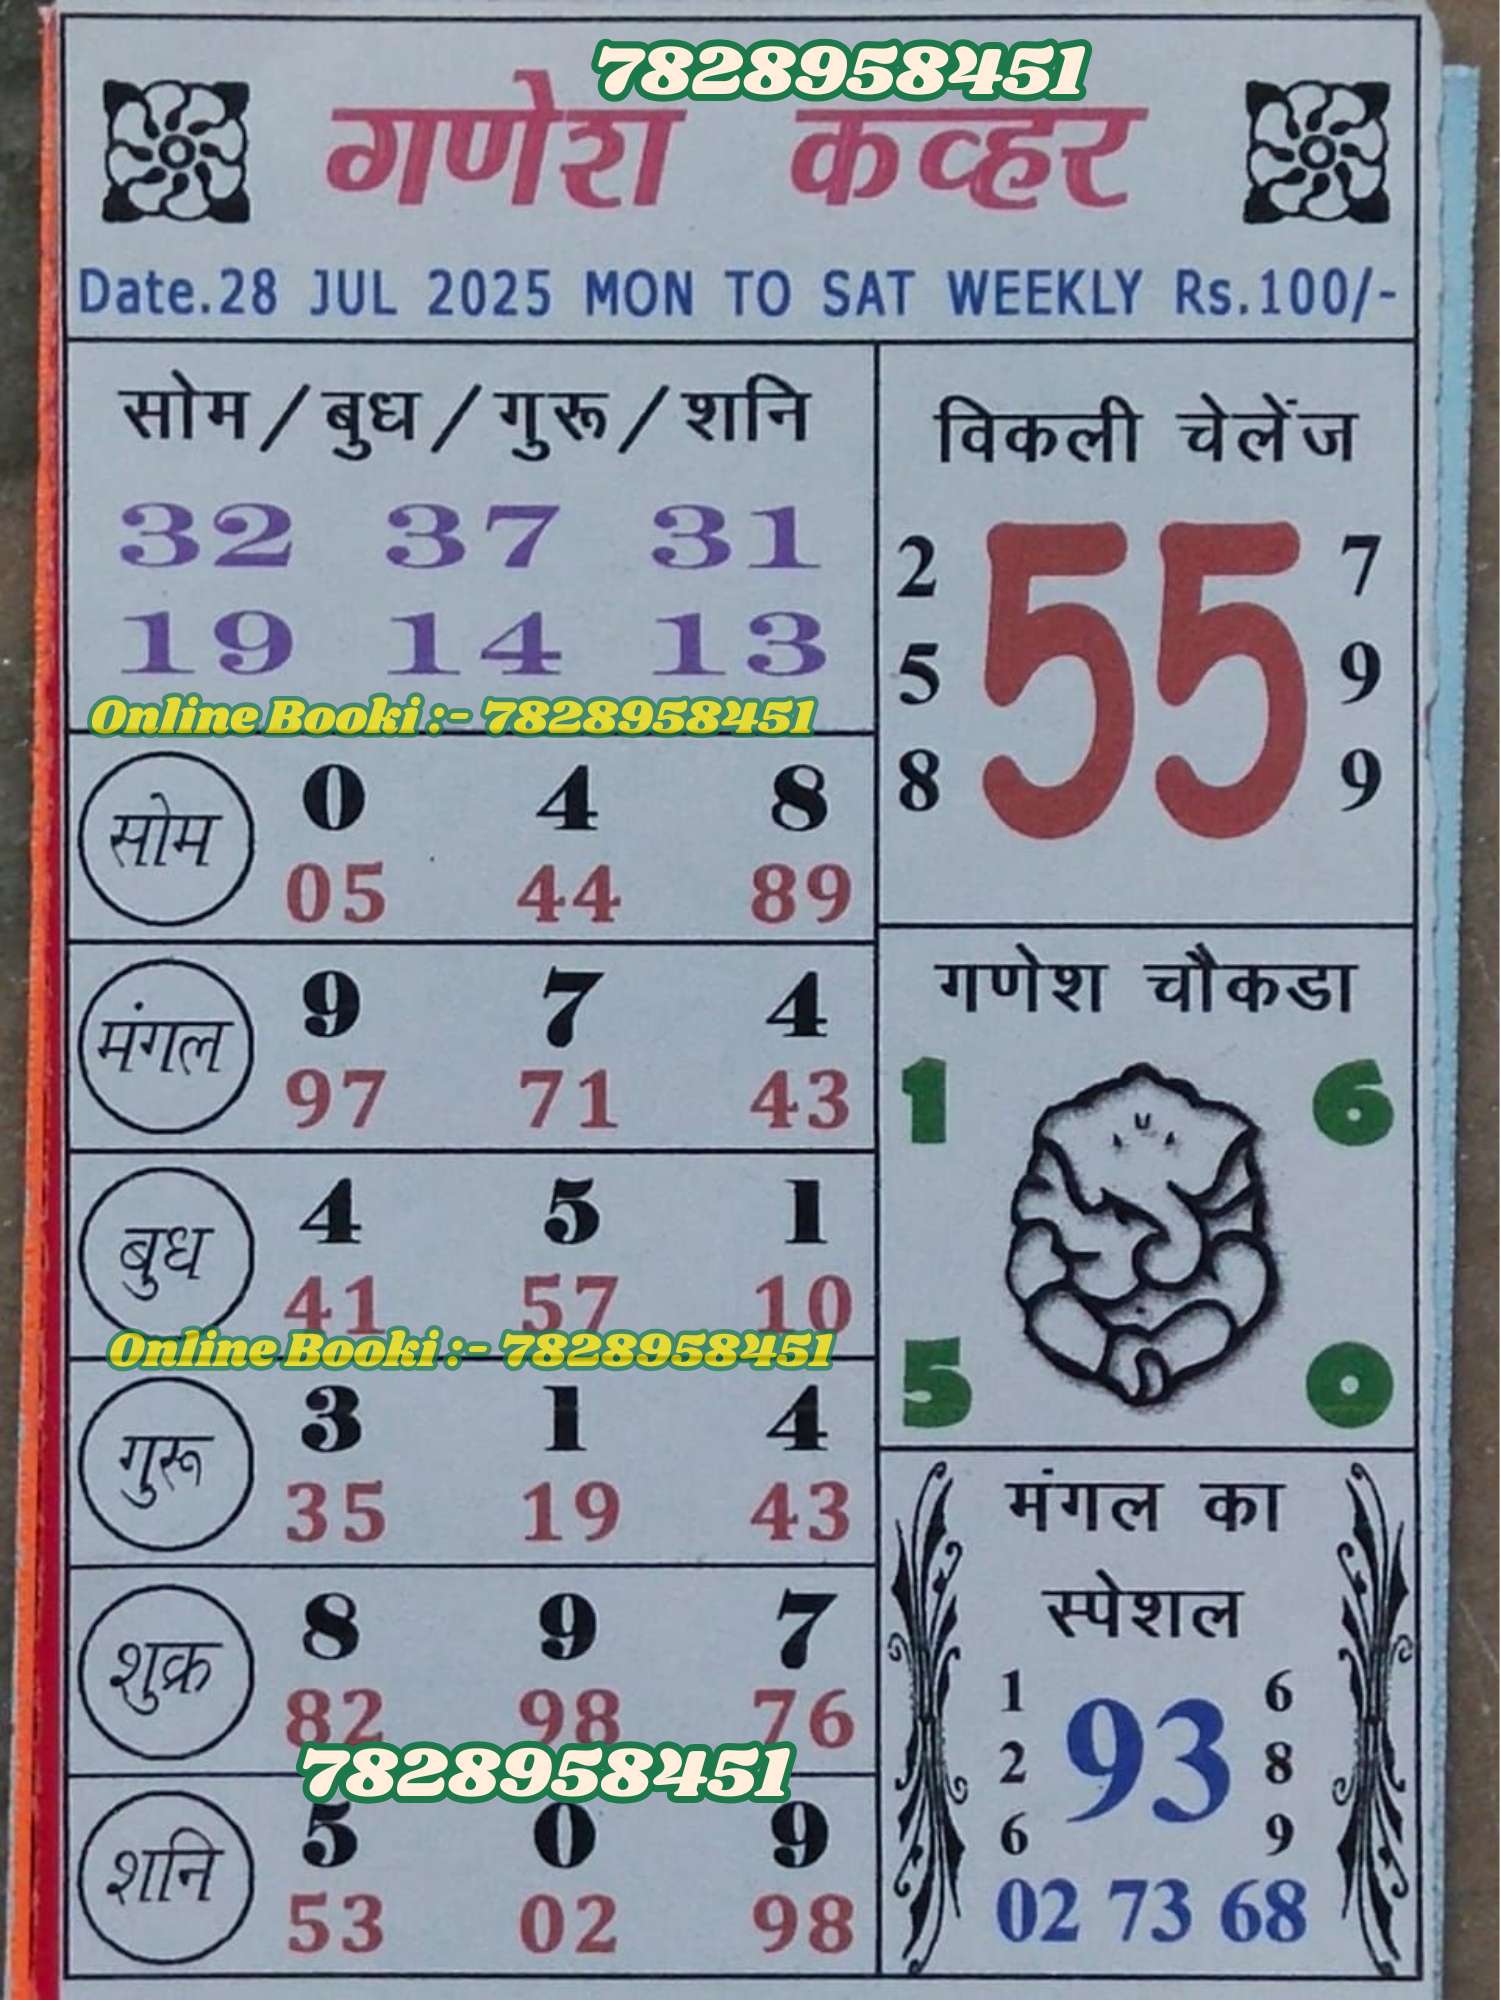 7828958451
गणेश कव्हर
Date.28 JUL 2025 MON TO SAT WEEKLY Rs.100/-
सोम/बुध/गुरू/शनि
32 37 31
19 14 13
Online Booki :- 7828958451
सोम
0 4 8
05 44 89
मंगल
9 7 4
97 71 43
बुध
4 5 1
41 57 10
Online Booki :- 7828958451
गुरू
3 1 4
35 19 43
शुक्र
8 9 7
82 98 76
7828958451
शनि
5 0 9
53 02 98
विकली चेलेंज
55
2 7
5 9
8 9
गणेश चौकडा
1 6
5 0
मंगल का
स्पेशल
1 6
2 93 8
6 9
02 73 68